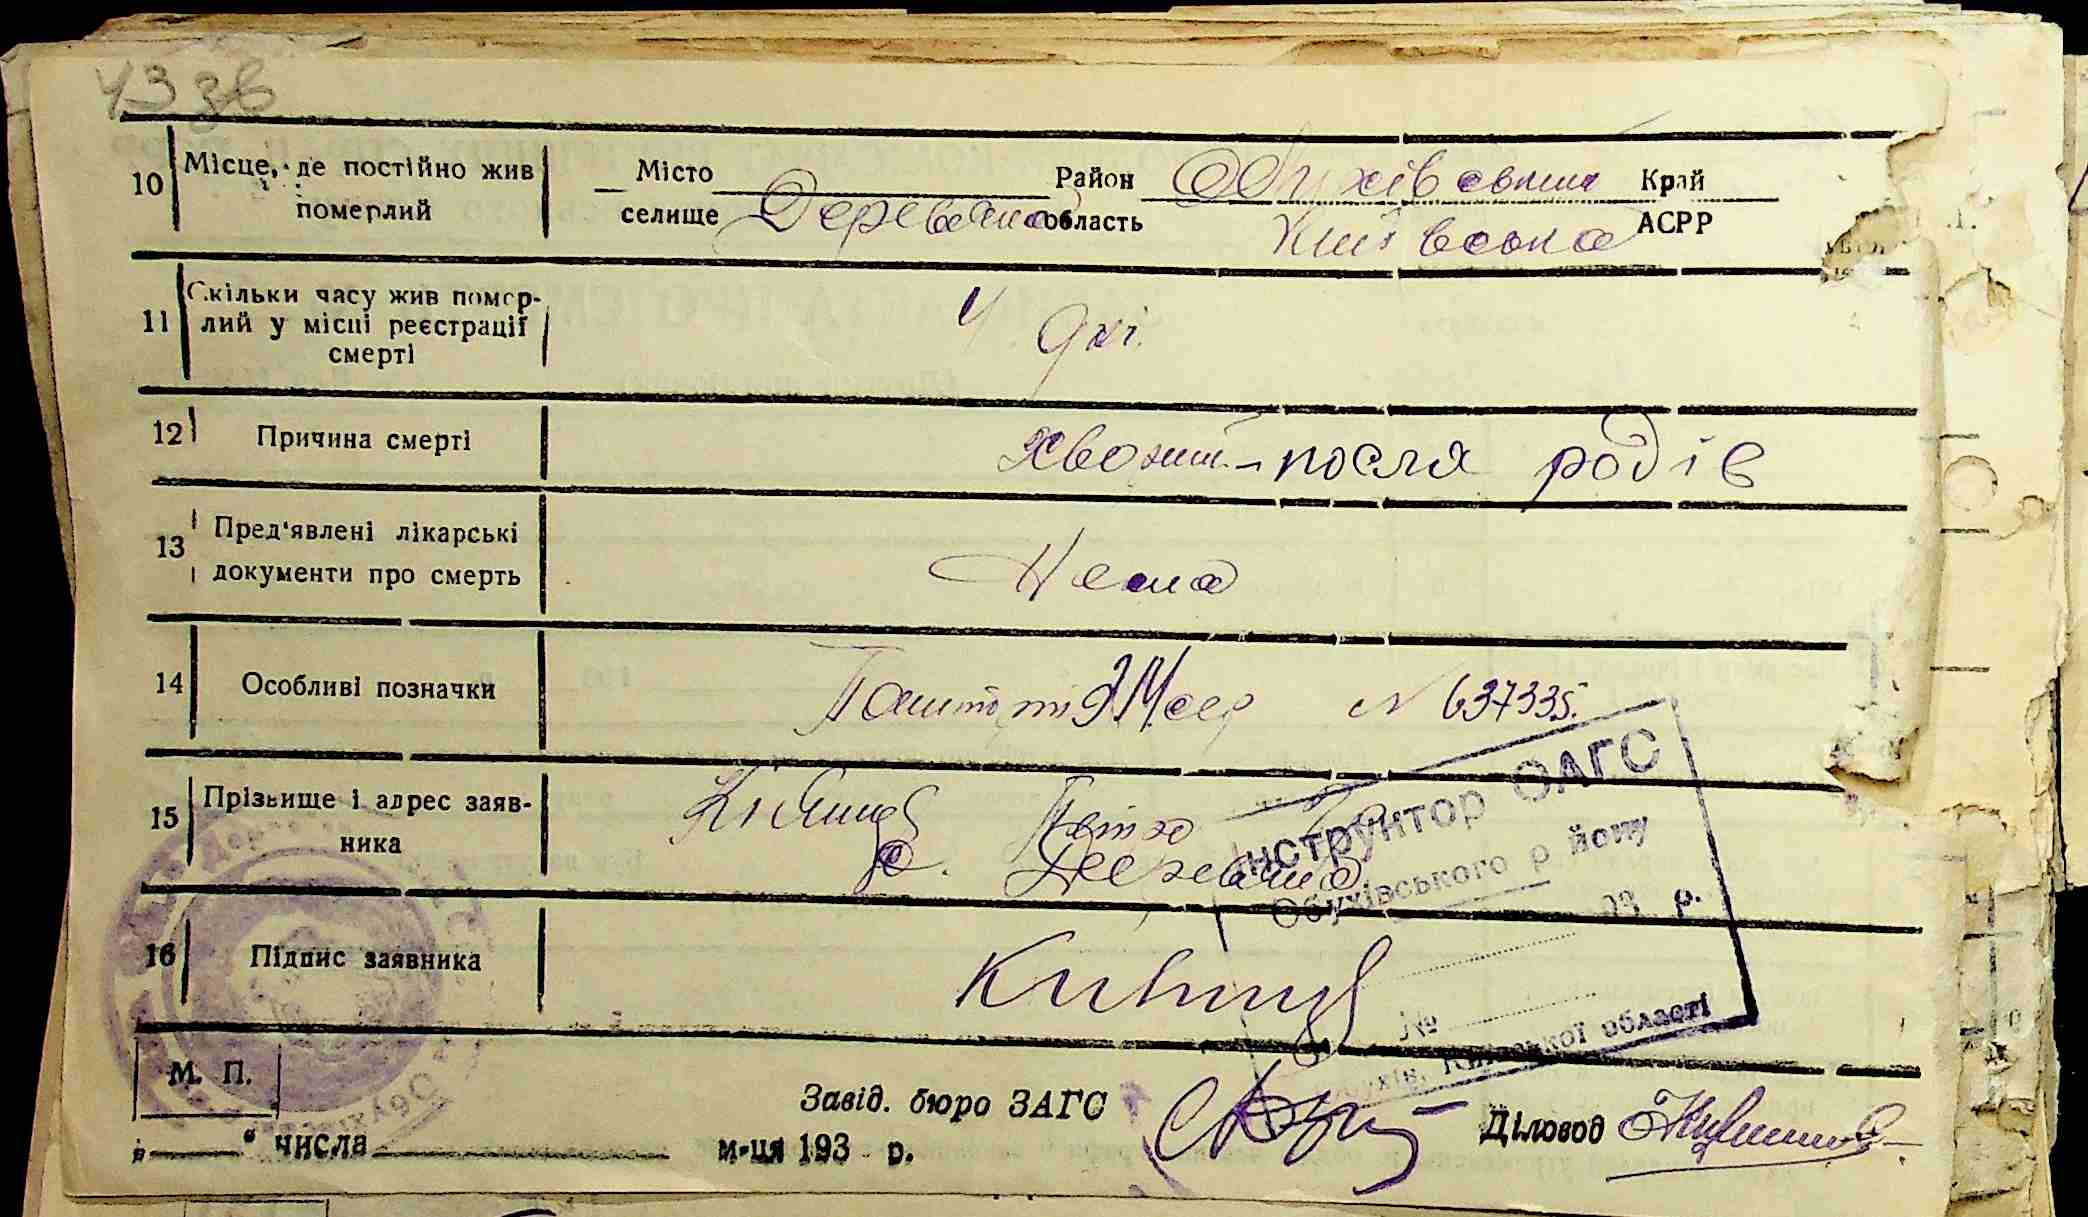 43 зв
10 Місце, де постійно жив померлий Місто селище Деревяна Район Обухівський область Київська Край АСРР
11 Скільки часу жив помер-
лий у місці реєстрації
смерті
4 дні.
12 Причина смерті
після родів
13 Пред'явлені лікарські
документи про смерть
Нема
14 Особливі позначки
Пашпорт № 637335.
15 Прізвище і адрес заяв-
ника
с. Деревяна
16 Підпис заявника
Інструктор ОАГС
Обухівського р йону
193 р.
№
Обухів, Київської області
М. П.
Завід. бюро ЗАГС
Діловод
" числа м-ця 193 р.